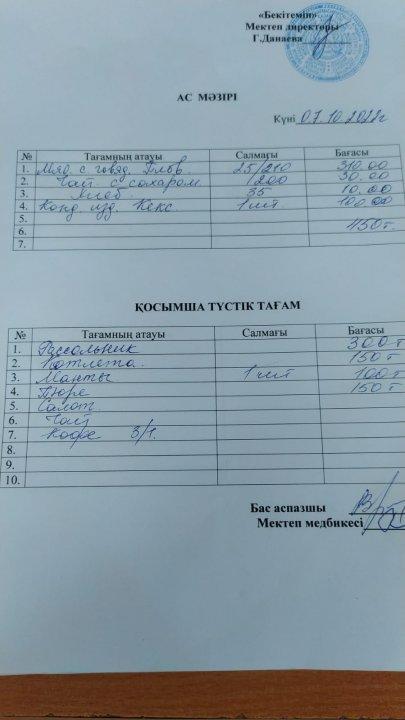 «Бекітемін»
Мектеп директоры
Г.Данаева
АС МӘЗІРІ
Күні 07.10.2022г
№ Тағамның атауы Салмағы Бағасы
1. Мяс. с говяд. Плов. 25/210 310.00
2. Чай с сахаром 1200 30.00
3. Хлеб 35 10.00
4. Конд. изд. Кекс. 1 шт. 100.00
5.
6. 450т.
7.
ҚОСЫМША ТҮСТІК ТАҒАМ
№ Тағамның атауы Салмағы Бағасы
1. Рассольник 300т
2. Котлета. 150т
3. Манты 1 шт 100т
4. Пюре 150т
5. Салат
6. Чай
7. Кофе 3/1.
8.
9.
10.
Бас аспазшы
Мектеп медбикесі